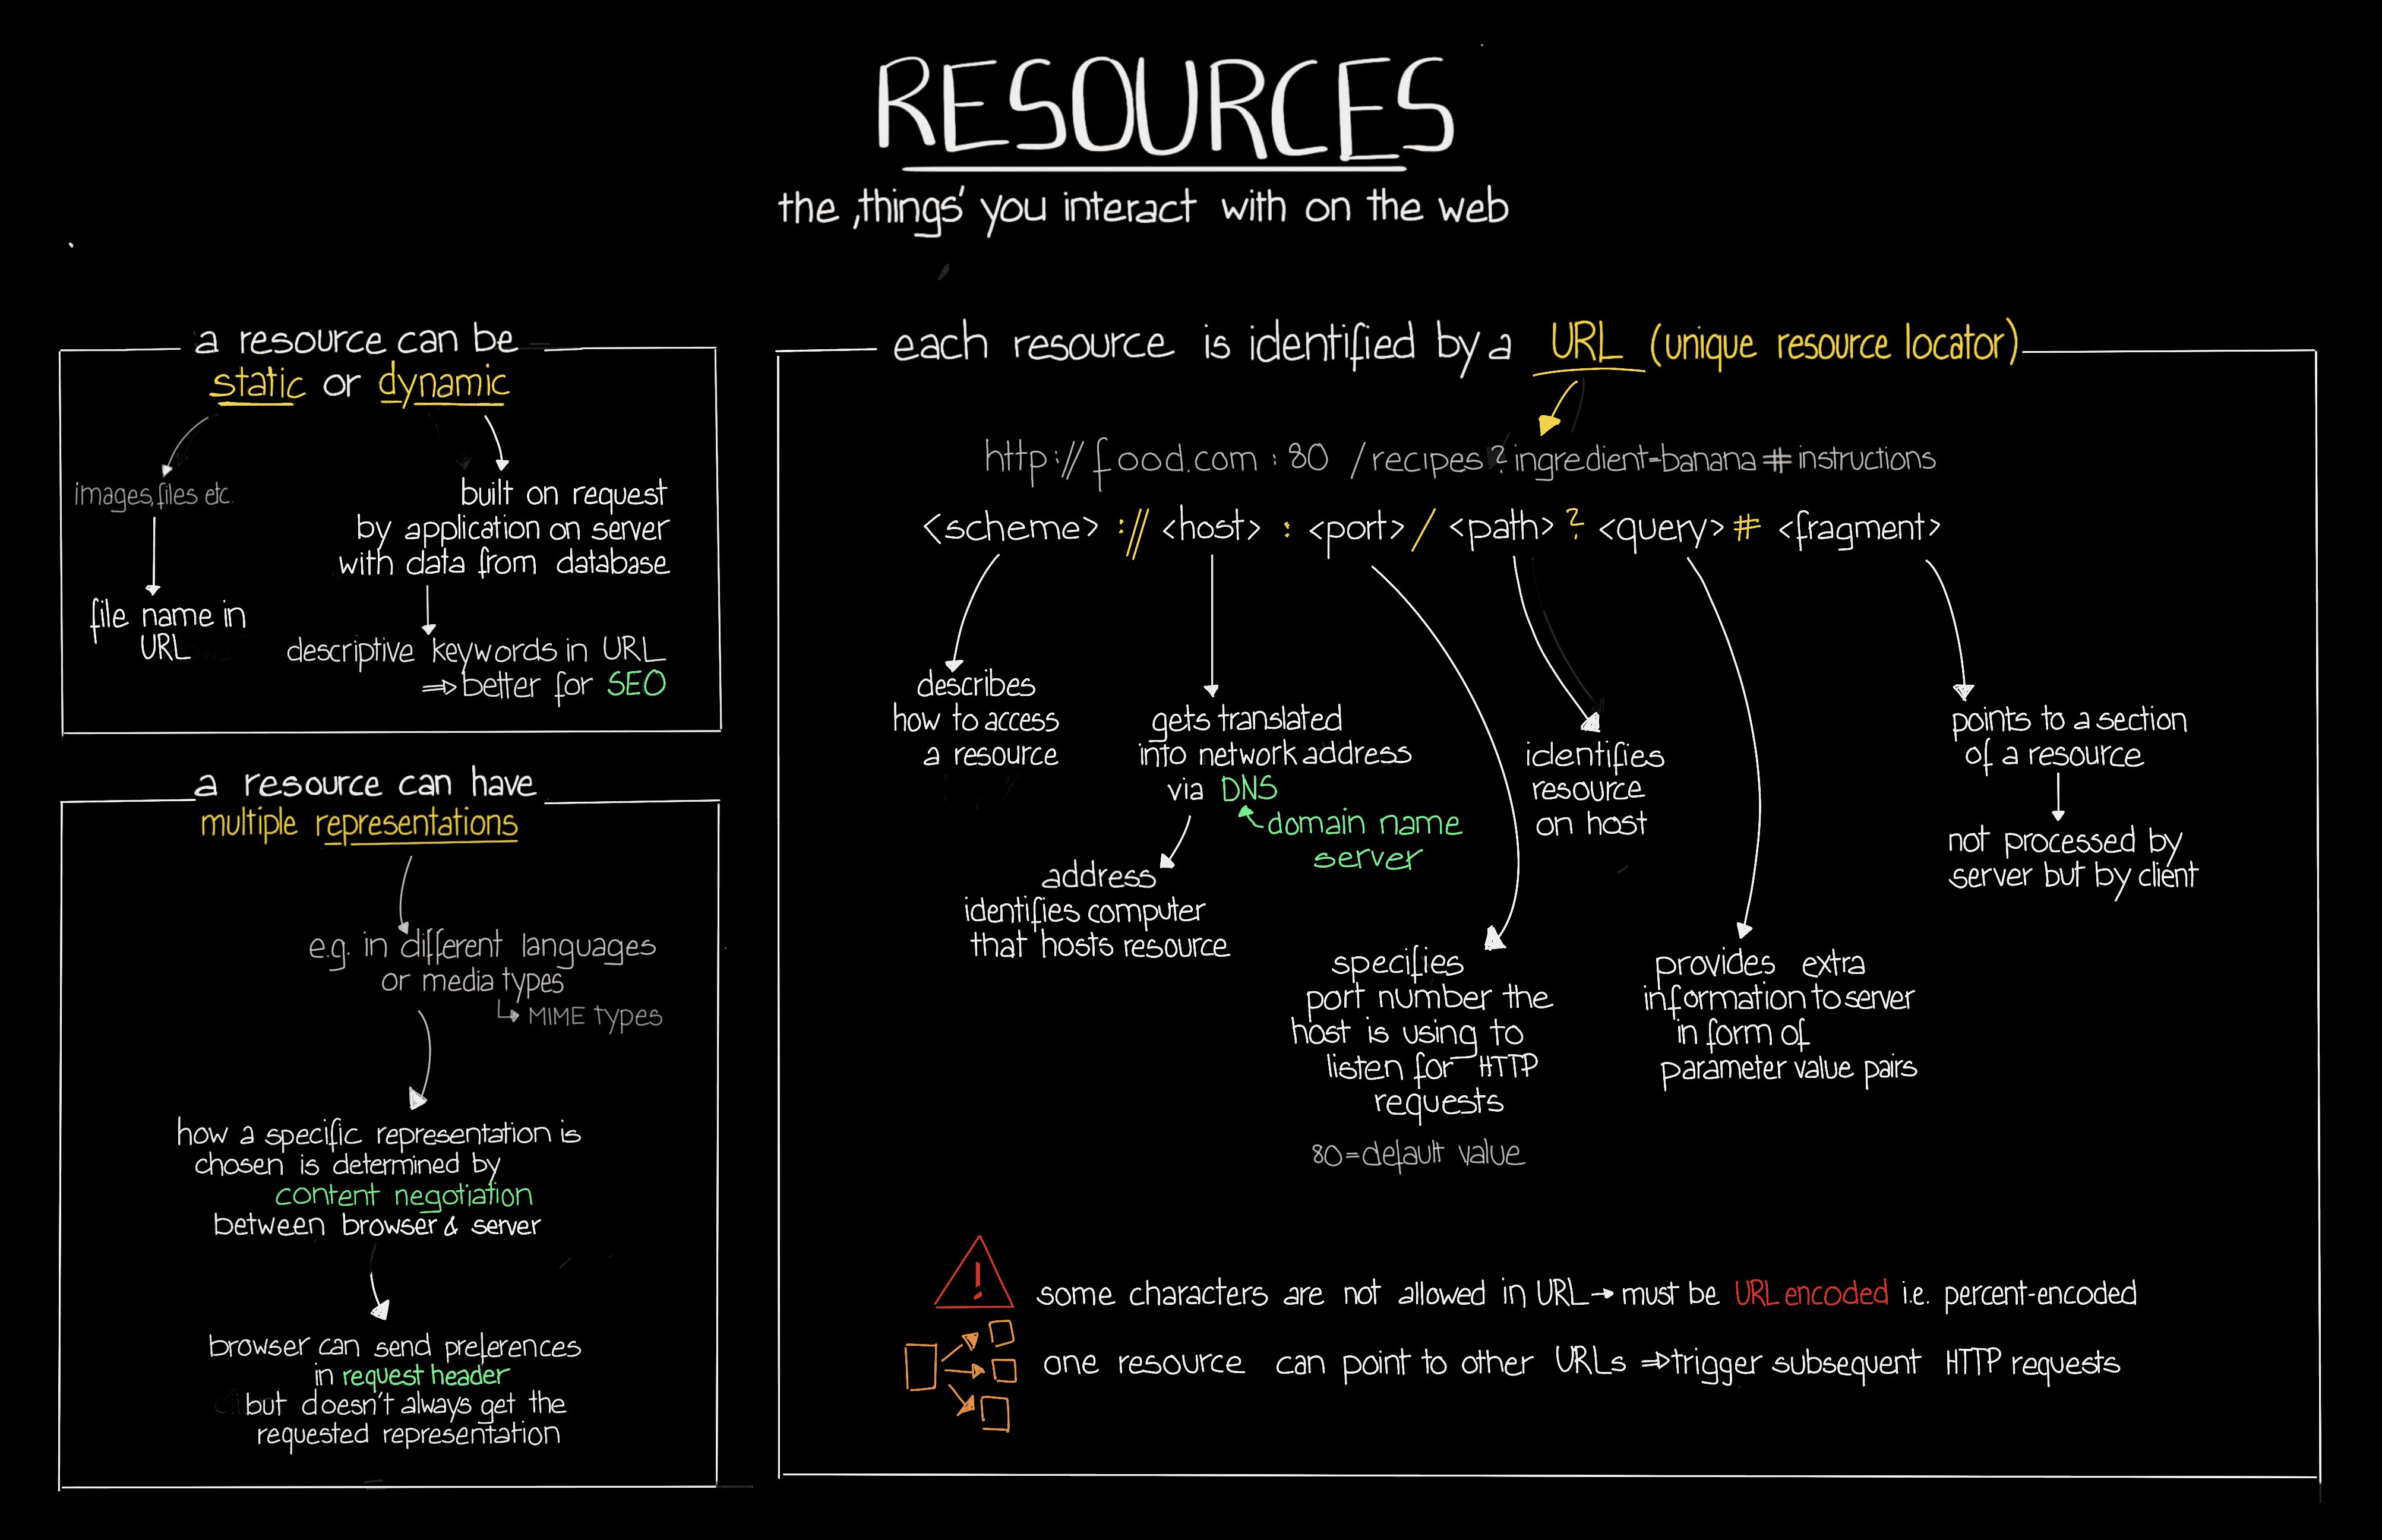 RESOURCES
the ‚things' you interact with on the web
a resource can be
static or dynamic
images, files etc.
file name in
URL
built on request
by application on server
with data from database
descriptive keywords in URL
⇒ better for SEO
a resource can have
multiple representations
e.g. in different languages
or media types
↳ MIME types
how a specific representation is
chosen is determined by
content negotiation
between browser & server
browser can send preferences
in request header
but doesn't always get the
requested representation
each resource is identified by a URL (unique resource locator)
http://food.com:80/recipes?ingredient=banana#instructions
<scheme>://<host>:<port>/<path>?<query>#<fragment>
describes
how to access
a resource
gets translated
into network address
via DNS
domain name
server
address
identifies computer
that hosts resource
specifies
port number the
host is using to
listen for HTTP
requests
80=default value
identifies
resource
on host
provides extra
information to server
in form of
parameter value pairs
points to a section
of a resource
not processed by
server but by client
! some characters are not allowed in URL → must be URL encoded i.e. percent-encoded
one resource can point to other URLs ⇒ trigger subsequent HTTP requests